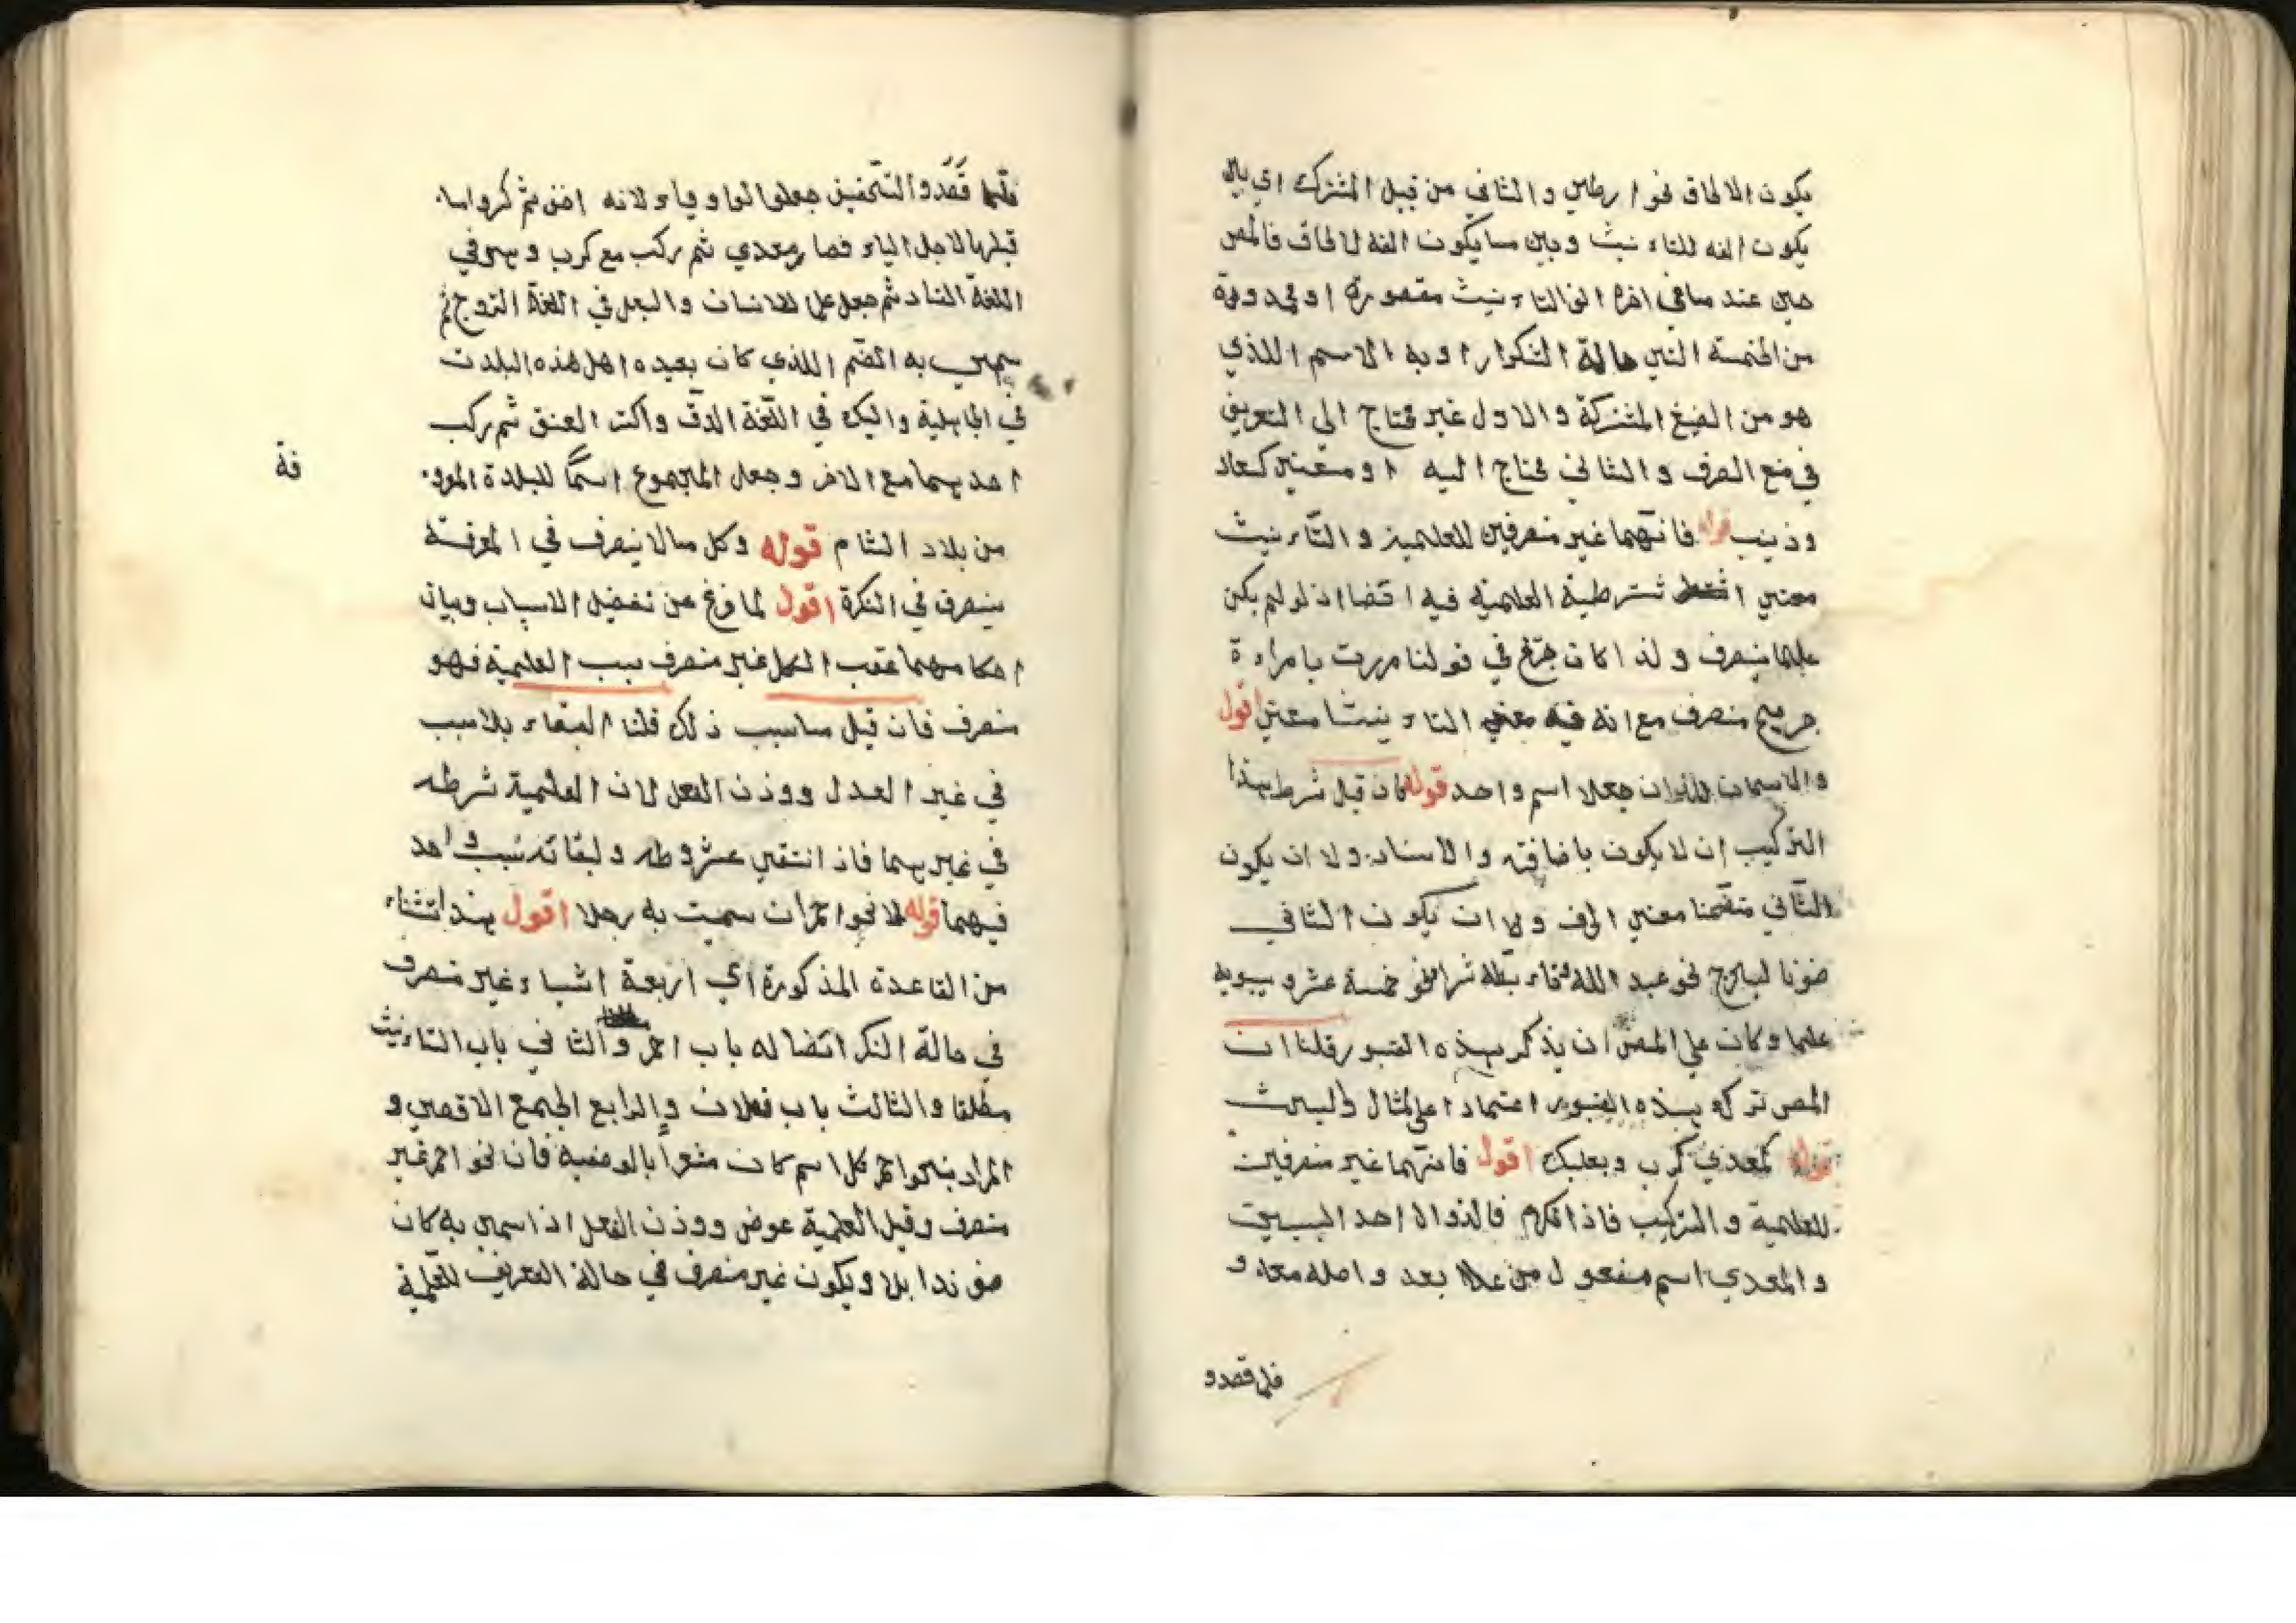 يكون الالحاق نحو ارطي والثاني من قبيل المشترك اي بين
يكون الفه للتاءنيث وبين ما يكون الفه لالحاق فالمص
حين عند ما في اخره الف التاءنيث مقصورة او ممدودة
من الخمسة التي حالة التكرار او به الاسم اللذي
هو من الصيغ المشتركة والاول غير محتاج الي التعريف
في منع الصرف والثاني محتاج اليه او معني كسعاد
وزينب قوله فانهما غير منصرفين للعلمية والتاءنيث
معني شرطية العلمية فيه اذ لو لم يكن
علما ينصرف ولذا كان جرّح في قولنا مررت بامراءة
جريح منصرف مع انه فيه معني التاءنيث معني اقول
والاسمان اللذان جعلا اسم واحد قوله كان قيل شرط هذا
التركيب ان لا يكون باضافة والاسناد ولا ان يكون
الثاني متضمنا معني الحرف ولا ان يكون الثاني
صوتا نحو عبد الله شرا نحو خمسة عشر وسيبويه
علما وكان علي المص ان يذكر بهذه القيود قلنا ان
المص تركه بهذه القيود اعتمادا علي المثال
قوله كمعدي كرب وبعلبك اقول فانهما غير منصرفين
للعلمية والتركيب فاذا نكرا احد السببين
والمعدي اسم مفعول من عدا يعد واصله معدو
فلما قصدو
فلما قصدوا التخفيف جعلوا الواو ياء لانه اخف ثم كروا ما
قبلها لاجل الياء فصار معدي ثم ركب مع كرب وهو في
اللغة ثم جعل علما للانسان والبعل في اللغة الزوج ثم
سمي به الصنم اللذي كان يعبده اهل هذه البلدت
في الجاهلية والبك في اللغة الدق العنق ثم ركب
احديهما مع الاخر وجعل المجموع اسماً للبلدة المعرو
فة
من بلاد الشام قوله وكل ما لا ينصرف في المعرفة
ينصرف في النكرة اقول لما فرغ عن تفصيل الاسباب وبيان
احكامهما عقب الكل غير منصرف سبب العلمية فهو
منصرف فان قيل ما سبب ذلك قلنا البقاء بلا سبب
في غير العدل ووزن الفعل لان العلمية شرطه
في غيرهما فاذ انتفي ولبقائه سبب واحد
فيهما قوله الا نحو احمر ان سميت به رجلا اقول هذا استثناء
من القاعدة المذكورة اي اربعة اشياء غير منصرف
في حالة النكر باب احمر والثاني باب التاءنيث
مطلقا والثالث باب فعلان والرابع الجمع الاقصي و
المراد بنحو احمر كل اسم كان مشعرا بالوصفية فان نحو احمر غير
منصرف وقيل العلمية عوض ووزن الفعل اذا سمي به كان
ويكون غير منصرف في حالة التعريف للعلمية